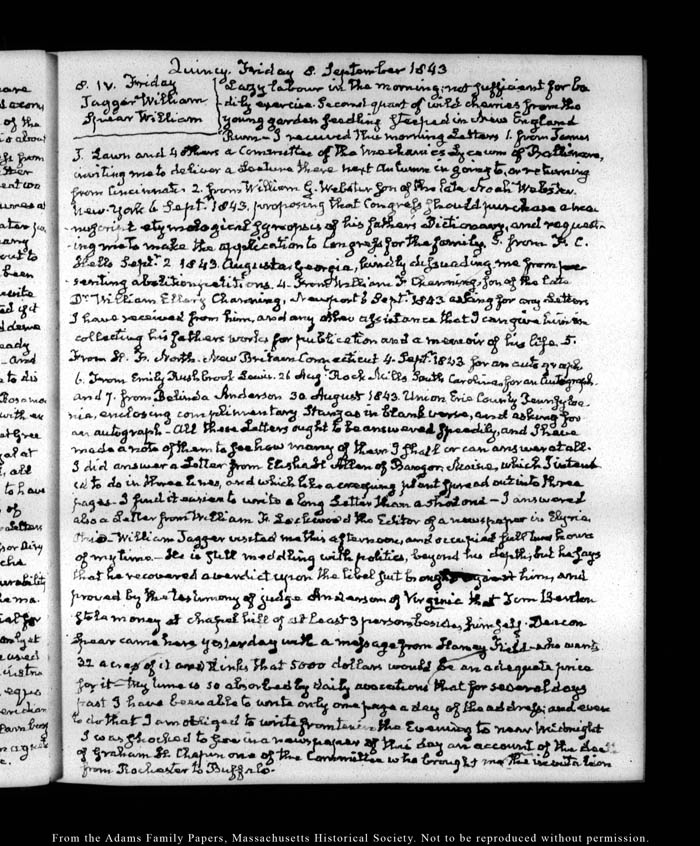 Quincy. Friday 8. September 1843
8. IV. Friday
Jagger William
Spear William
Lazy labour in the morning; not sufficient for bo
dily exercise. Second quart of wild cherries from the
young garden seedling steeped in New England
Rum. I received this morning Letters 1. from James
J. and 4 others a Committee of the Mechanics Lyceum of Baltimore,
inviting me to deliver a Lecture there next Autumn in going to, or returning
from Cincinnati. 2. from William G. Webster, son of the late Noah Webster.
New-York 6 Septr. 1843. proposing that Congress should purchase a ma
nuscript etymological Synopsis of his father's Dictionary, and request
ing me to make the application to Congress for the family. 3. from F. C.
Septr. 2. 1843. Augusta Georgia, kindly dissuading me from pre
senting abolition petitions. 4. From William F. Channing, son of the late
Dr. William Ellery Channing, Newport 6 Septr. 1843 asking for any Letters
I have received from him, and any other assistance that I can give him in
collecting his fathers works for publication and a memoir of his life. 5.
From H. F. North. New Britain Connecticut 4. Septr. 1843 for an autograph
6. From Emily Rushbrook Lewis. 26 Augt. Rock Mills South Carolina, for an Autograph.
and 7. from Belinda Anderson 30 August 1843. Union Erie County Pennsylva
nia, enclosing complimentary Stanzas in blank verse, and asking for
an autograph. All these Letters ought to be answered speedily, and I have
made a note of them to see how many of them I shall or can answer at all.
I did answer a Letter from Elisha H. Allen of Bangor, Maine, which I intend
ed to do in three lines, and which like a creeping plant spread out into three
pages. I find it easier to write a long Letter than a short one — I answered
also a Letter from William F. Lockwood the Editor of a newspaper in Elyria.
Ohio — William Jagger visited me this afternoon, and occupied full two hours
of my time — He is still meddling with politics, beyond his depth; but he says
that he recovered a verdict upon the libel suit brought against him, and
proved by the testimony of judge Anderson of Virginia that Tom Benton
stole money at chapel hill of at least 3 persons, besides himself. Deacon
Spear came here yesterday with a message from Harvey Field who wants
32 acres of it and thinks that 5000 dollars would be an adequate price
for it — My time is so absorbed by daily avocations that for several days
past I have been able to write only one page a day of the address; and even
to do that I am obliged to write from ten in the Evening to near Midnight
I was shocked to see in a newspaper of this day an account of the death
of Graham H. Chapin one of the Committee who brought me the invitation
from Rochester to Buffalo.
From the Adams Family Papers, Massachusetts Historical Society. Not to be reproduced without permission.